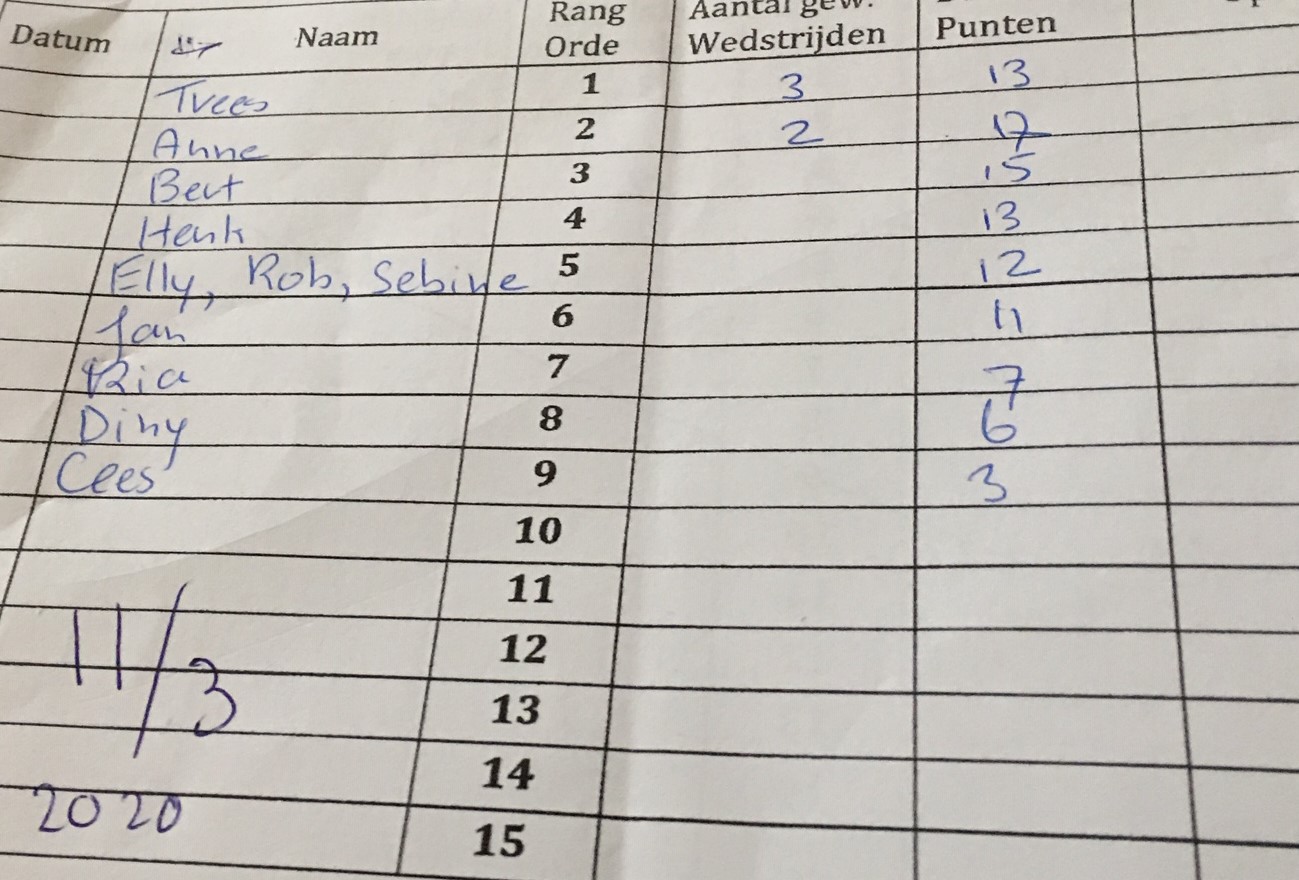 Datum Naam Rang Orde Aantal gew. Wedstrijden Punten
Trees 1 3 13
Anne 2 2 17
Bert 3 15
Henk 4 13
Elly, Rob, Sebine 5 12
Jan 6 11
Ria 7 7
Diny 8 6
Cees 9 3
10
11
12
13
14
15
11/3
2020